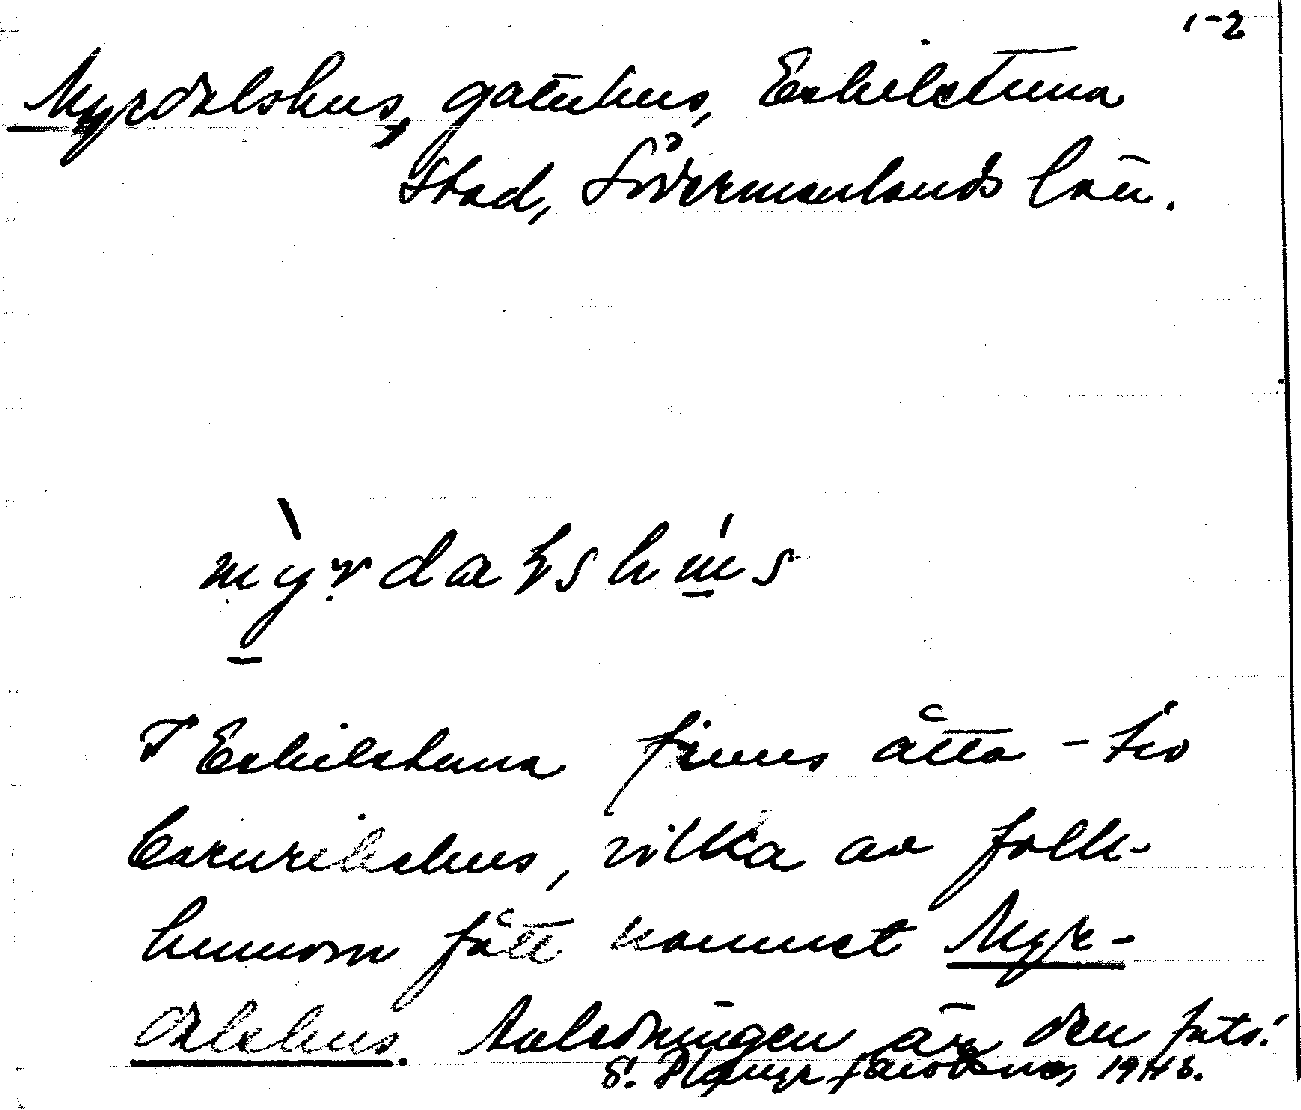 1-2
Myrdalshus, gatuhus, Eskilstuna
stad, Södermanlands län.
myrdalshus
I Eskilstuna finns åtta-tio
barnrikehus, vilka av folk-
humorn fått namnet Myr-
dalshus. Anledningen är den ,,
S. 1946.